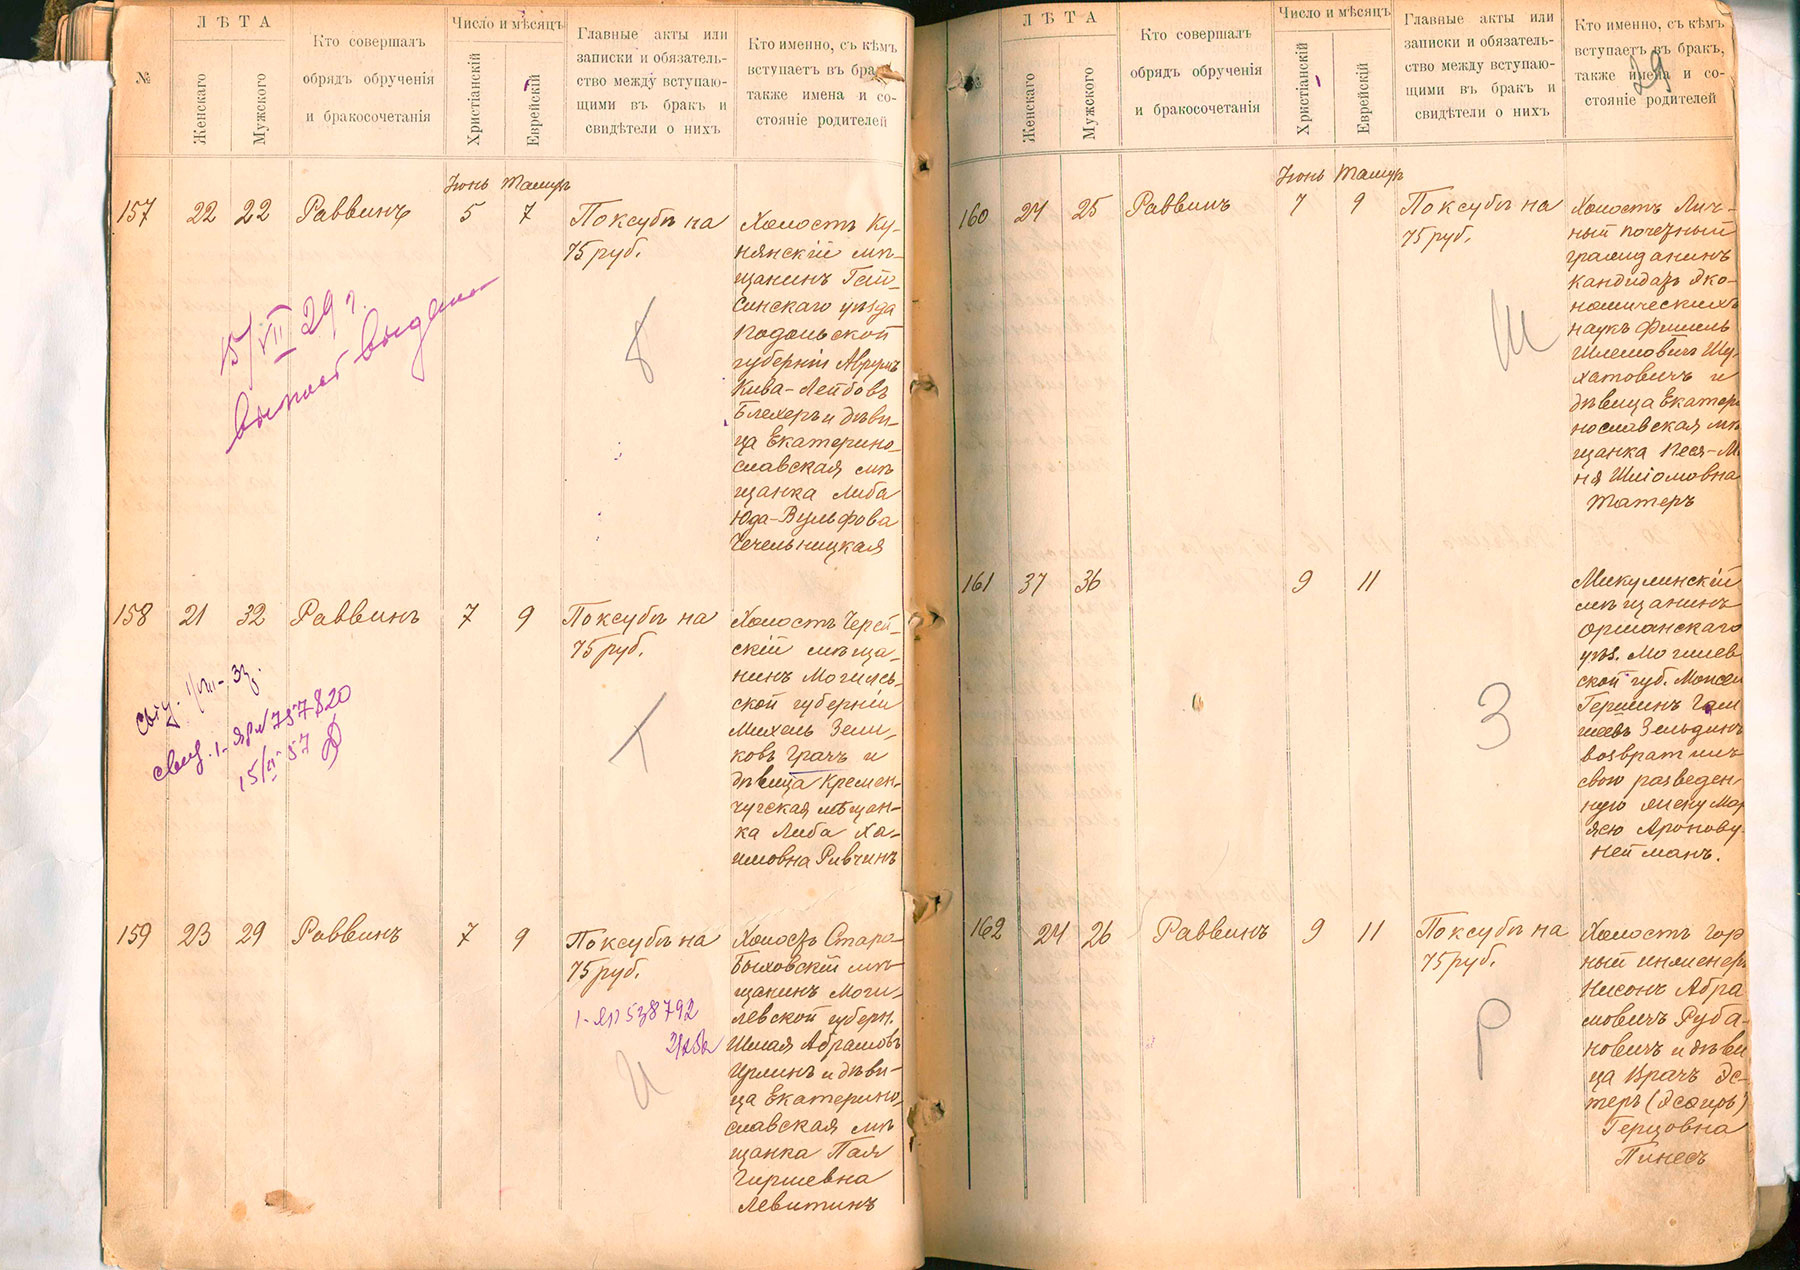 №
ЛѢТА
Женскаго
Мужского
Кто совершалъ
обрядъ обрученія
и бракосочетанія
Число и мѣсяцъ
Христіанскій
Еврейскій
Главные акты или
записки и обязатель-
ство между вступаю-
щими въ бракъ и
свидѣтели о нихъ
Кто именно, съ кѣмъ
вступаетъ въ бракъ,
также имена и со-
стояніе родителей
157
22
22
Раввинъ
Іюнь
5
Тамузъ
7
По ксубѣ на
75 руб.
Холостъ Ку-
нянскій мѣ-
щанинъ Гай-
синскаго уѣзда
Подольской
губерніи Аврумъ
Кива-Лейбовъ
Блехеръ и дѣви-
ца Екатерино-
славская мѣ
щанка Либа
Юда-Вульфова
Чечельницкая
Б
15/VII 29 г.
выдана
158
21
32
Раввинъ
7
9
По ксубѣ на
75 руб.
Холостъ Черей-
скій мѣща-
нинъ Могилев-
ской губерніи
Михель Зели-
ковъ Грачъ и
дѣвица Кремен-
чугская мѣщан-
ка Либа Ха-
имовна Ривчинъ
Т
№ 757820
159
23
29
Раввинъ
7
9
По ксубѣ на
75 руб.
538792
И
Холостъ Старо-
Быховскій мѣ-
щанинъ Моги-
левской губерн.
Шмая Абрамовъ
Ирлинъ и дѣви-
ца Екатерино-
славская мѣ
щанка Пая
Гиршевна
Левитинъ
29
№
ЛѢТА
Женскаго
Мужского
Кто совершалъ
обрядъ обрученія
и бракосочетанія
Число и мѣсяцъ
Христіанскій
Еврейскій
Главные акты или
записки и обязатель-
ство между вступаю-
щими въ бракъ и
свидѣтели о нихъ
Кто именно, съ кѣмъ
вступаетъ въ бракъ,
также имена и со-
стояніе родителей
160
24
25
Раввинъ
Іюнь
7
Тамузъ
9
По ксубѣ на
75 руб.
Ш
Холостъ Лич-
ный почетный
гражданинъ
кандидатъ эко-
номическихъ
наукъ Фишель
Шлемовичъ Шу-
хатовичъ и
дѣвица Екатери
нославская мѣ
щанка Песя-М
ня Шліомовна
Татеръ
161
37
36
9
11
З
Микулинскій
мѣщанинъ
Оршанскаго
уѣз. Могилев
ской губ. Мовсей
Гершинъ
Зельдинъ
возвратилъ
свою разведен
ную жену Мар
ясю Аронову
Нейманъ.
162
24
26
Раввинъ
9
11
По ксубѣ на
75 руб.
Р
Холостъ гор
ный инженеръ
Нисонъ Абра
мовичъ Руба-
новичъ и дѣви
ца врачъ Эс-
теръ (Эсфирь)
Герцовна
Пинесъ